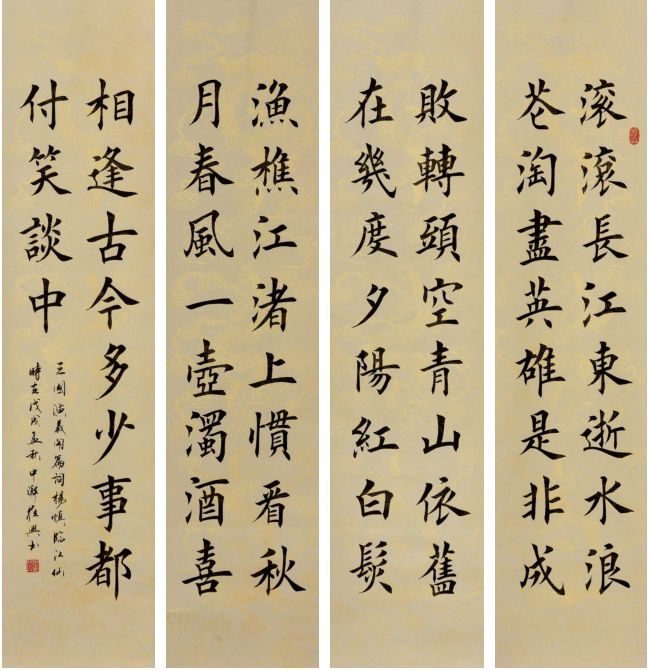 滚滚長江東逝水浪
花淘盡英雄是非成
敗轉頭空青山依舊
在幾度夕陽紅白髮
漁樵江渚上慣看秋
月春風一壺濁酒喜
相逢古今多少事都
付笑談中
三國演義開篇詞楊慎臨江仙
時在戊戌孟秋中澣